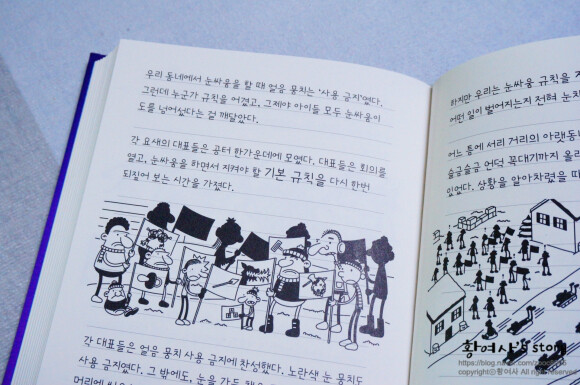 우리 동네에서 눈싸움을 할 때 얼음 뭉치는 '사용 금지'였다.
그런데 누군가 규칙을 어겼고, 그제야 아이들 모두 눈싸움이
도를 넘어섰다는 걸 깨달았다.
각 요새의 대표들은 공터 한가운데에 모였다. 대표들은 회의를
열고, 눈싸움을 하면서 지켜야 할 기본 규칙을 다시 한번
되짚어 보는 시간을 가졌다.
각 대표들은 얼음 뭉치 사용 금지에 찬성했다. 노란색 눈 뭉치도
사용 금지였다. 그 밖에도, 눈을 가득
하지만 우리는 눈싸움 규칙을
어떤 일이 벌어지는지 전혀
어느 틈에 서리 거리의 아랫동
슬금슬금 언덕 꼭대기까지 올라
있었다. 상황을 알아차렸을 때
황여사's story
https://blog.na
copyrightⓒ황여사 All rights reserved